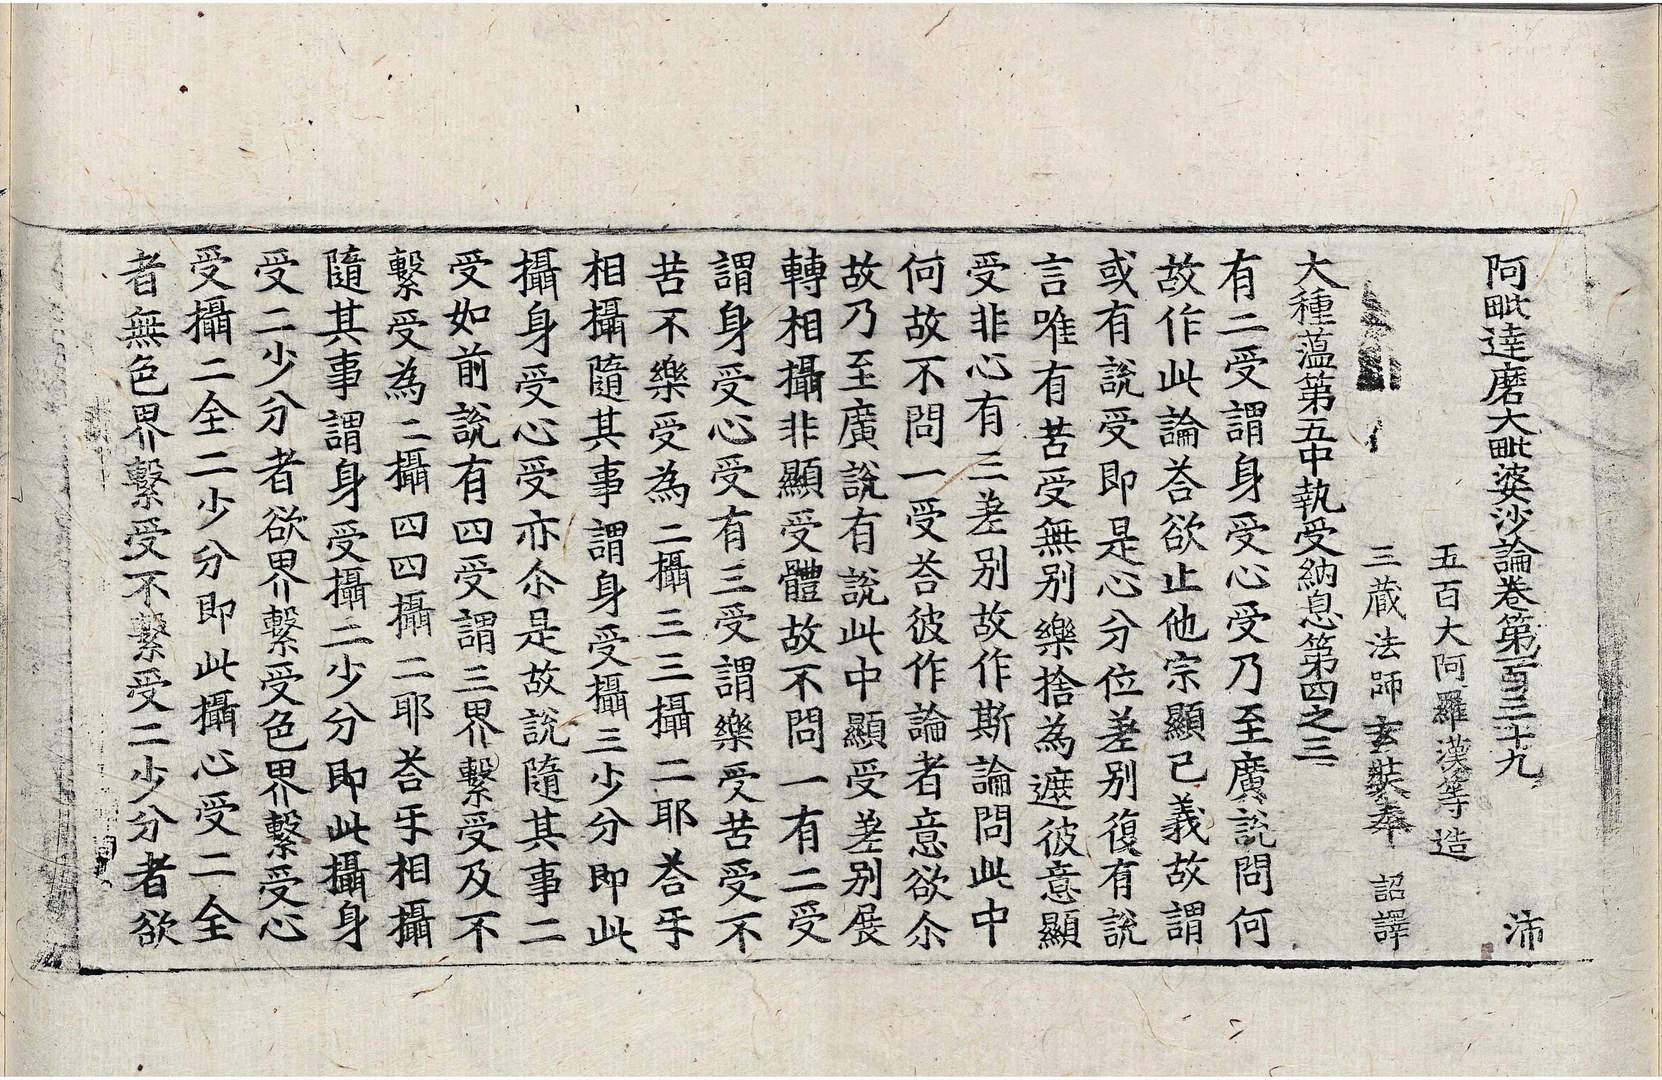 阿毗達磨大毗婆沙論卷第一百三十九 沛
五百大阿羅漢等造
三藏法師玄奘奉 詔譯
大種蕰第五中執受納息第四之三
有二受謂身受心受乃至廣說問何
故作此論荅欲止他宗顯己義故謂
或有說受即是心分位差别復有說
言唯有苦受無别樂捨為遮彼意顯
受非心有三差别故作斯論問此中
何故不問一受荅彼作論者意欲尒
故乃至廣說有說此中顯受差别展
轉相攝非顯受體故不問一有二受
謂身受心受有三受謂樂受苦受不
苦不樂受為二攝三三攝二耶荅㸦
相攝隨其事謂身受攝三少分即此
攝身受心受亦尒是故說隨其事二
受如前說有四受謂三界繫受及不
繫受為二攝四四攝二耶荅㸦相攝
隨其事謂身受攝二少分即此攝身
受二少分者欲界繫受色界繫受心
受攝二全二少分即此攝心受二全
者無色界繫受不繫受二少分者欲